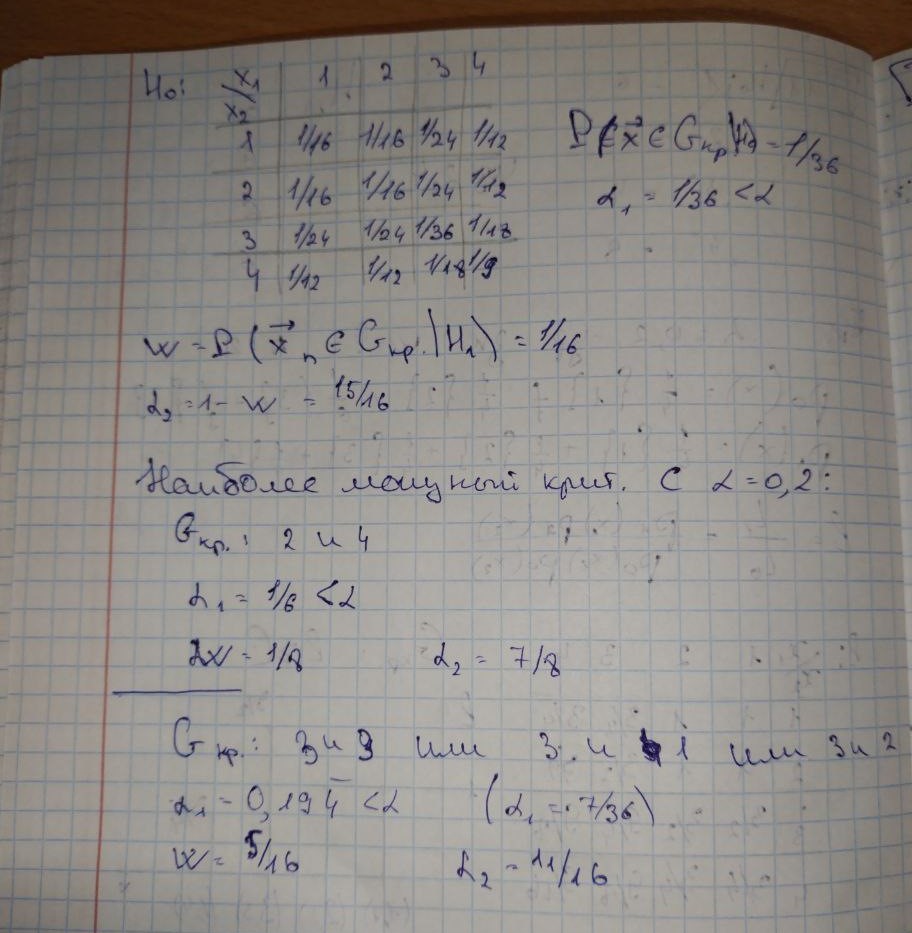 H₀: x₁/x₂ 1 2 3 4
1 1/16 1/16 1/24 1/12
2 1/16 1/16 1/24 1/12
3 1/24 1/24 1/36 1/18
4 1/12 1/12 1/18 1/9
P(x⃗ ∈ Gкр|H₀) = 1/36
α₁ = 1/36 < α
W = P(x⃗ₙ ∈ Gкр.|H₁) = 1/16
α₂ = 1 - W = 15/16
Наиболее мощный крит. с α = 0,2:
Gкр.: 2 и 4
α₁ = 1/6 < α
W = 1/8 α₂ = 7/8
Gкр.: 3 и 3 или 3 и 1 или 3 и 2
α₁ = 0,194̄ < α (α₁ = 7/36)
W = 5/16 α₂ = 11/16